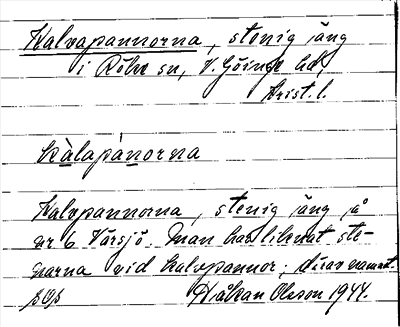 Kalvapannorna, stenig äng
i Röke sn, V. Göinge hd,
Krist. l.
kàlapànorna
Kalvpannorna, stenig äng på
nr 6 Värsjö. Man har liknat ste-
narna vid kalvpannor; därav namnet.
Håkan Olsson 1944.